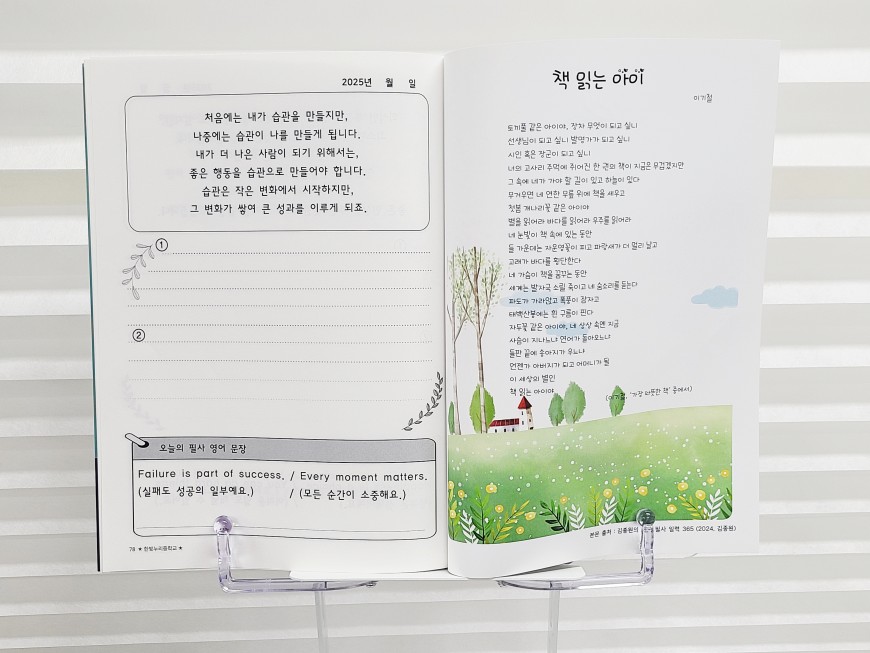 2025년 월 일
처음에는 내가 습관을 만들지만,
나중에는 습관이 나를 만들게 됩니다.
내가 더 나은 사람이 되기 위해서는,
좋은 행동을 습관으로 만들어야 합니다.
습관은 작은 변화에서 시작하지만,
그 변화가 쌓여 큰 성과를 이루게 되죠.
①
②
오늘의 필사 영어 문장
Failure is part of success. / Every moment matters.
(실패도 성공의 일부예요.) / (모든 순간이 소중해요.)
78 ★ 한빛누리중학교 ★
책 읽는 아이
이기철
토끼풀 같은 아이야, 장차 무엇이 되고 싶니
선생님이 되고 싶니 발명가가 되고 싶니
시인 혹은 장군이 되고 싶니
너의 고사리 주먹에 쥐어진 한 권의 책이 지금은 무겁겠지만
그 속에 네가 가야 할 길이 있고 하늘이 있다
무거우면 네 연한 무릎 위에 책을 세우고
첫봄 개나리꽃 같은 아이야
별을 읽어라 바다를 읽어라 우주를 읽어라
네 눈빛이 책 속에 있는 동안
들 가운데는 자운영꽃이 피고 파랑새가 더 멀리 날고
고래가 바다를 횡단한다
네 가슴이 책을 꿈꾸는 동안
세계는 발자국 소릴 죽이고 네 숨소리를 듣는다
파도가 가라앉고 폭풍이 잠자고
태백산봉에는 흰 구름이 핀다
자두꽃 같은 아이야, 네 상상 속엔 지금
사슴이 지나느냐 연어가 돌아오느냐
들판 끝에 송아지가 우느냐
언젠가 아버지가 되고 어머니가 될
이 세상의 별인
책 읽는 아이야
(이기철, '가장 따뜻한 책' 중에서)
본문 출처 : 김종원의 필사 일력 365 (2024, 김종원)